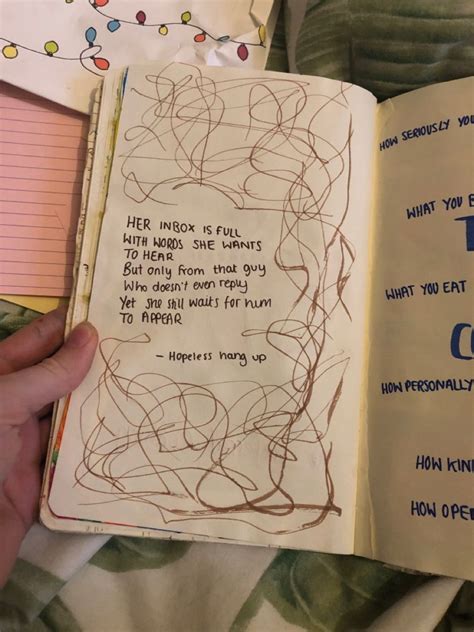 HER INBOX IS FULL
WITH WORDS SHE WANTS
TO HEAR
But only from that guy
Who doesn't even reply
Yet she still waits for him
TO APPEAR
– Hopeless hang up
HOW SERIOUSLY YOU
WHAT YOU E
WHAT YOU EAT
HOW PERSONALLY
HOW KIN
HOW OPE